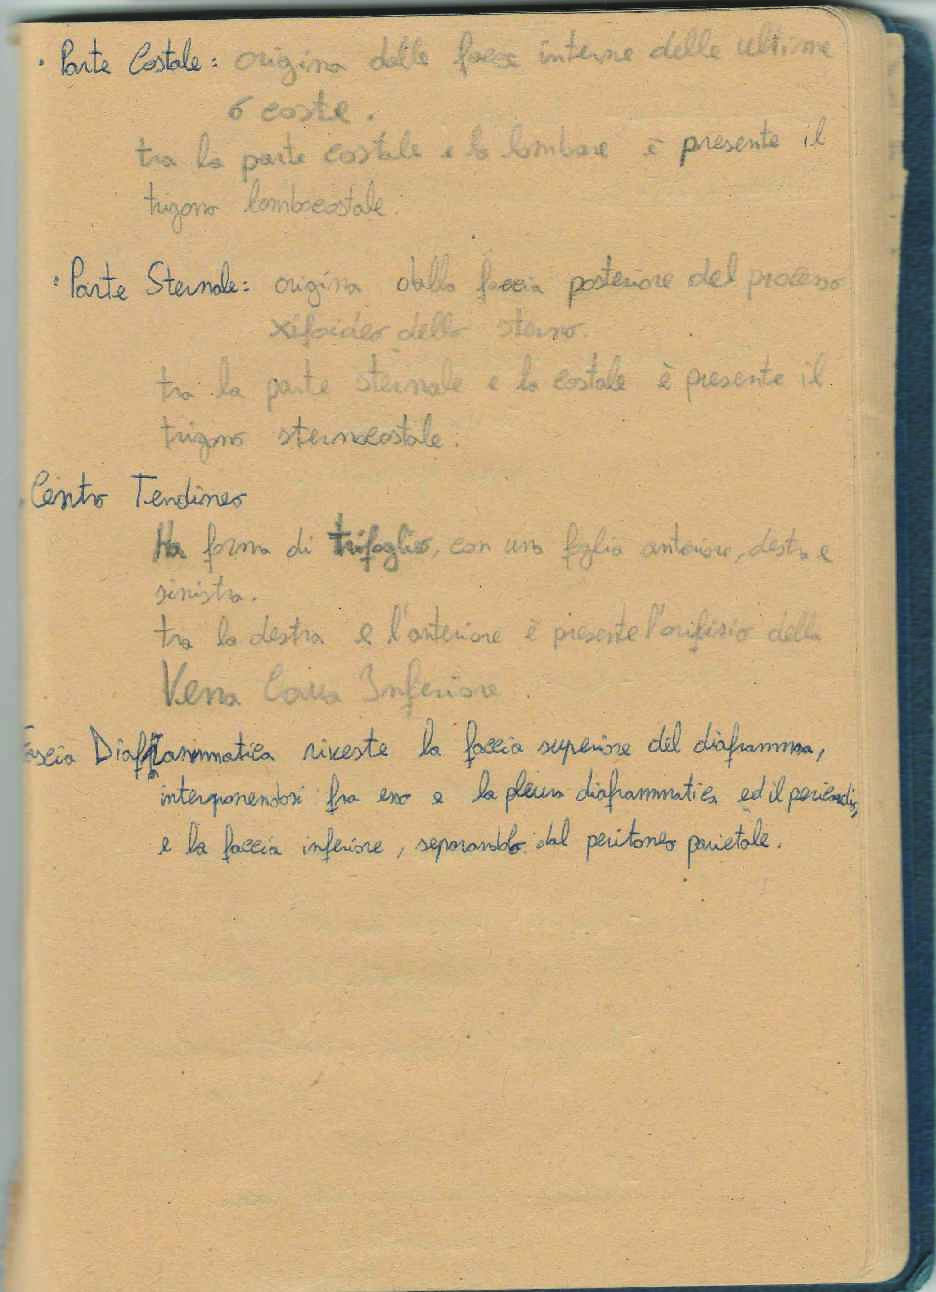 · Parte Costale: origina dalle facce interne delle ultime
6 coste.
tra la parte costale e la lombare è presente il
trigono lombocostale.
· Parte Sternale: origina dalla faccia posteriore del processo
xifoideo dello sterno.
tra la parte sternale e la costale è presente il
trigono sternocostale.
· Centro Tendineo
Ha forma di trifoglio, con una foglia anteriore, destra e
sinistra.
tra la destra e l'anteriore è presente l'orifizio della
Vena Cava Inferiore.
Fascia Diaframmatica riveste la faccia superiore del diaframma,
interponendosi fra esso e la pleura diaframmatica ed il pericardio,
e la faccia inferiore, separandolo dal peritoneo parietale.